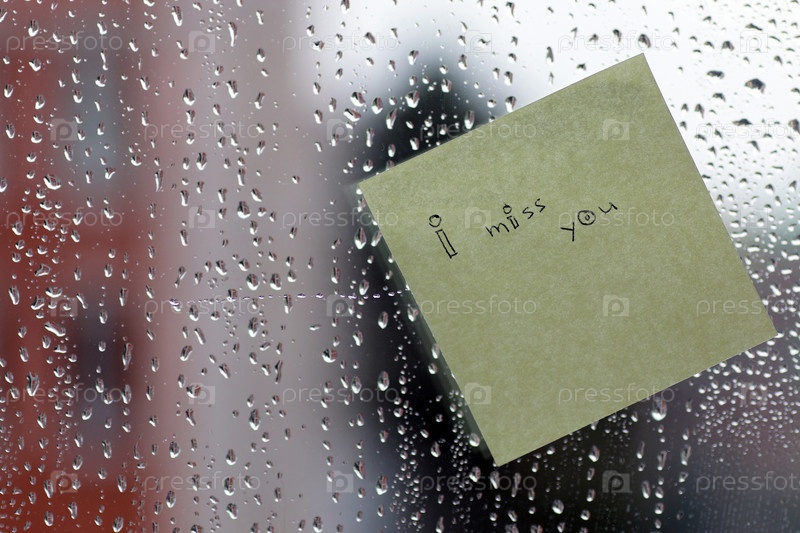 i miss you
pressfoto